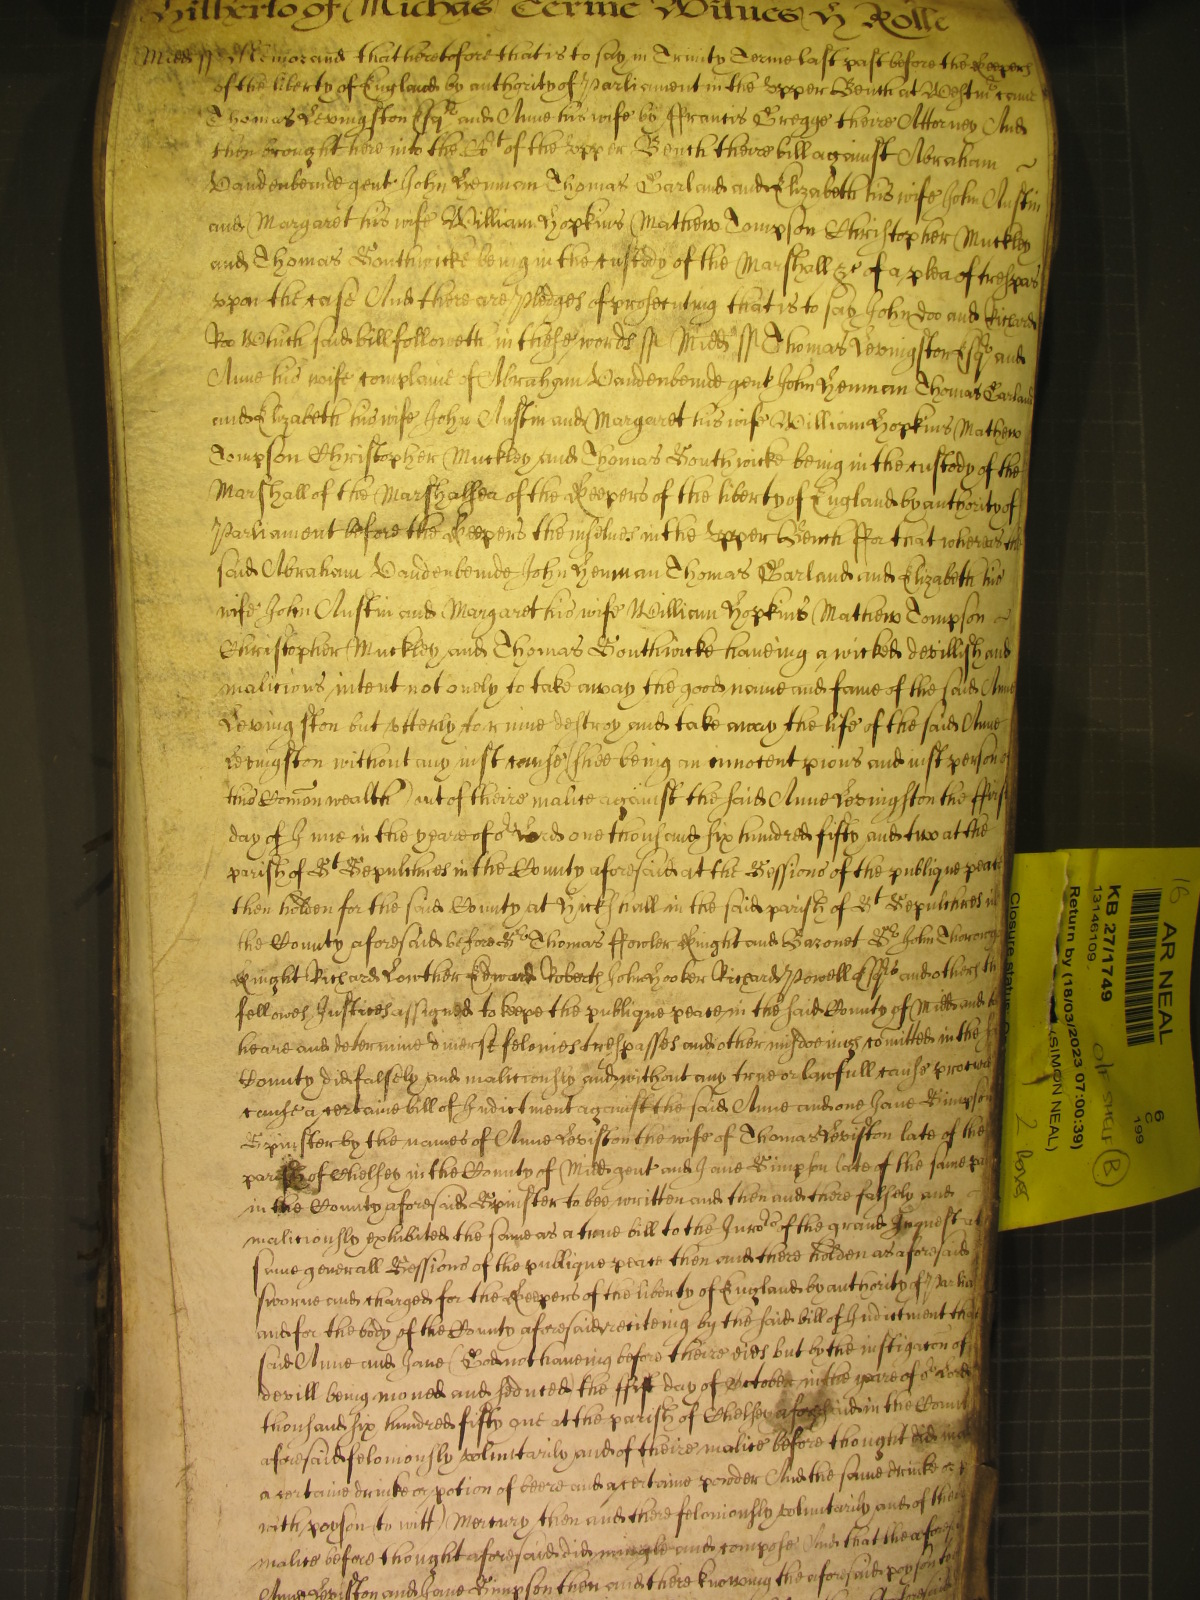 Hilberto of Michās Terme Witnes H Rolle
Midd ss Memorand that heretofore that is to say in Trinity Terme last past before the Keepers
of the liberty of England by authority of Parliament in the Upper Bench at Westmr came
Thomas Levingston Esqr and Anne his wife by ffrancis Gregge theire Attorney And
then brought here into the Cort of the Upper Bench theire bill against Abraham
Vandenbemde gent John Henman Thomas Garland and Elizabeth his wife John Austin
and Margaret his wife William Hopkins Mathew Tompson Christopher Muckley
and Thomas Southwicke being in the custody of the Marshall &c of a plea of trespas
upon the case And there are pledges of prosecuting that is to say John Doo and Richard
Roo Which said bill followeth in these words ss Midd ss Thomas Levingston Esqr and
Anne his wife complaine of Abraham Vandenbemde gent John Henman Thomas Garland
and Elizabeth his wife John Austin and Margaret his wife William Hopkins Mathew
Tompson Christopher Muckley and Thomas Southwicke being in the custody of the
Marshall of the Marshalsea of the Keepers of the liberty of England by authority of
Parliament before the Keepers themselves in the Upper Bench ffor that whereas the
said Abraham Vandenbemde John Henman Thomas Garland and Elizabeth his
wife John Austin and Margaret his wife William Hopkins Mathew Tompson
Christopher Muckley and Thomas Southwicke haveing a wicked devillish and
malicious intent not onely to take away the good name and fame of the said Anne
Levingston but utterly to ruine destroy and take away the life of the said Anne
Levingston without any just cause (shee being an innocent pious and just person of
this Comōn wealth) out of theire malice against the said Anne Levingston the ffirst
day of June in the yeare of or Lord one thousand six hundred fifty and two at the
parish of St Sepulchres in the County aforesaid at the Sessions of the publique peace
then holden for the said County at Hickshall in the said parish of St Sepulchres in
the County aforesaid before Sr Thomas ffowler Knight and Baronet Sr John Thorowg
Knight Richard Lowther Edward Roberts John Hooker Richard Powell Esqrs and others th
fellowes Justices assigned to keepe the publique peace in the said County of Midd and to
heare and determine diverse felonies trespasses and other misdoeings comitted in the s
County did falsely and maliciously and without any true or lawfull cause procure
cause a certaine bill of Indictment against the said Anne and one Jane Simpson
Spinster by the names of Anne Leviston the wife of Thomas Leviston late of the
parish of Chelsey in the County of Midd gent and Jane Simpson late of the same pa
in the County aforesaid Spinster to bee written and then and there falsely and
maliciously exhibited the same as a true bill to the Jurors of the grand Inquest at
same generall Sessions of the publique peace then and there holden as aforesaid
sworne and charged for the Keepers of the liberty of England by authority of Parlia
and for the body of the County aforesaid reciteing by the said bill of Indictment that
said Anne and Jane (God not haveing before theire eies but by the instigacon of
devill being moved and seduced) the ffirst day of October in the yeare of or Lord
thousand six hundred fifty one at the parish of Chelsey aforesaid in the Count
aforesaid feloniously voluntarily and of theire malice before thought did
a certaine drinke or potion of beere and a certaine powder And the same drinke or p
with poyson (to witt) Mercury then and there feloniously voluntarily and of their
malice before thought aforesaid did mingle and compose And that the afores
Anne Leviston and Jane Simpson then and there knowing the aforesaid poyson to
AR NEAL
KB 27/1749
13146109
Return by (18/03/2023 07:00:39)
(SIMON NEAL)
Closure status
16
6
C
199
B
2 boxes